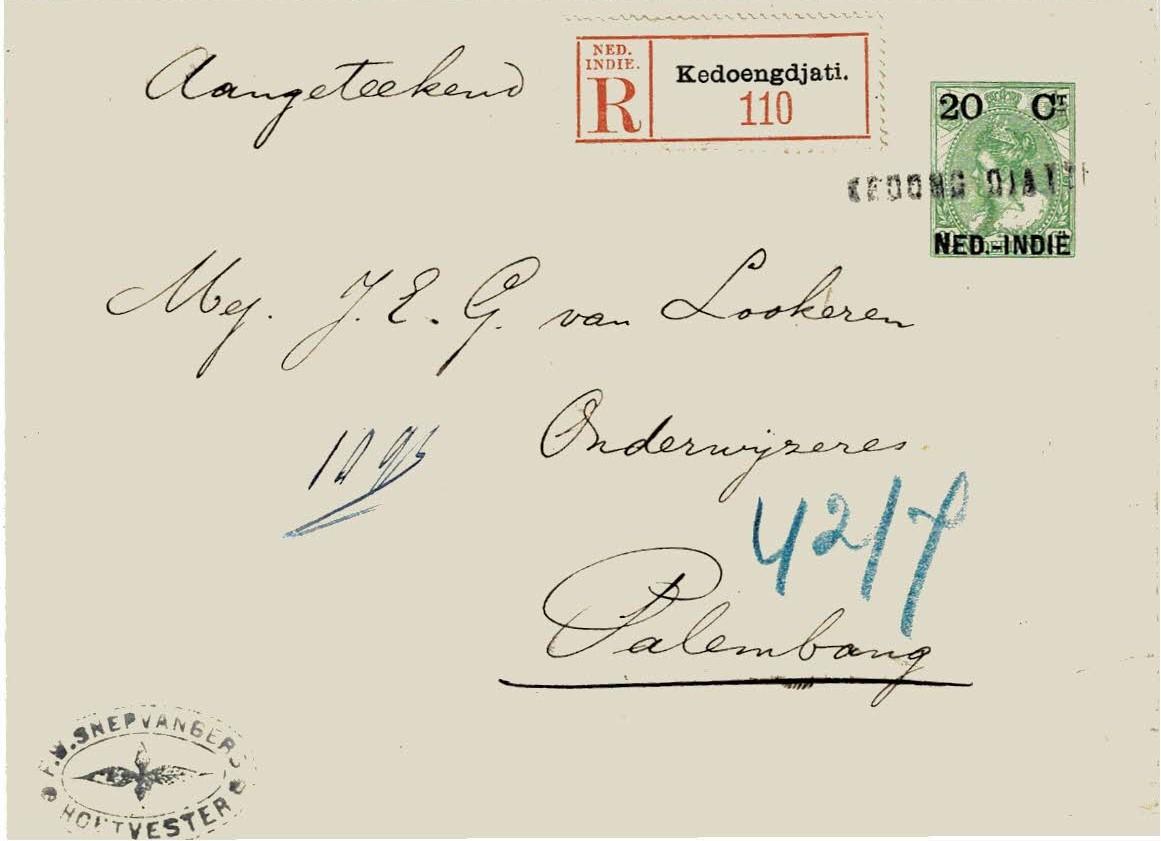 Aangeteekend
NED.
INDIE.
R
Kedoengdjati.
110
20 CT
KEDONG DJATTI
NED.-INDIË
Mej. J. E. G. van Lookeren
Onderwijzeres
42/7
Palembang
F.W. SNEPVANGERS
HOUTVESTER